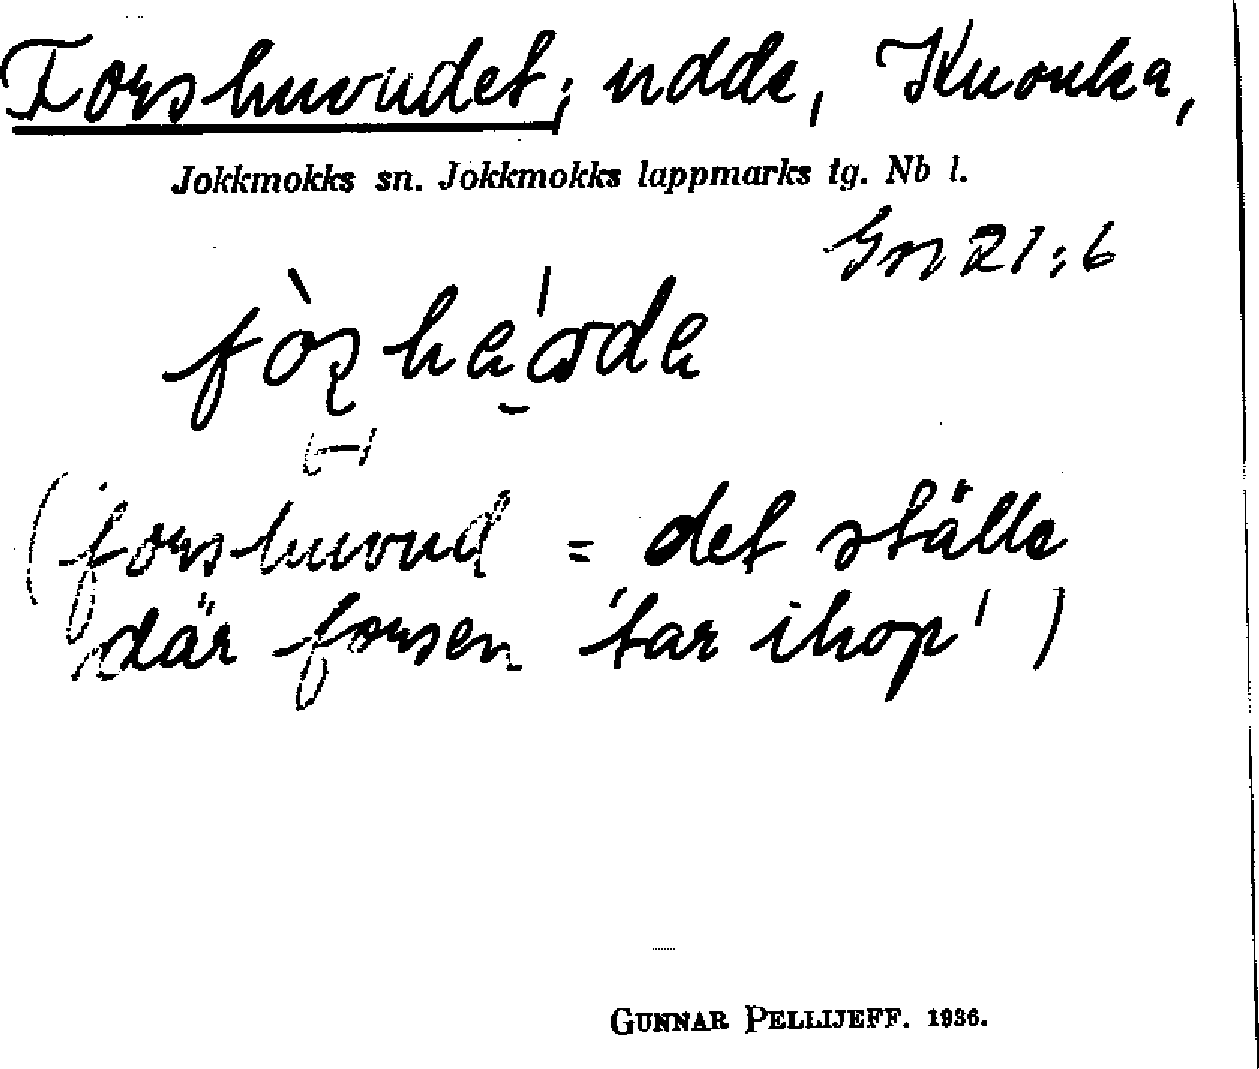 Forshuvudet, udde, Kuouka,
Jokkmokks sn. Jokkmokks lappmarks tg. Nb l.
Gn 21:6
(forshuvud = det ställe
där forsen 'tar ihop')
GUNNAR PELLIJEFF. 1936.